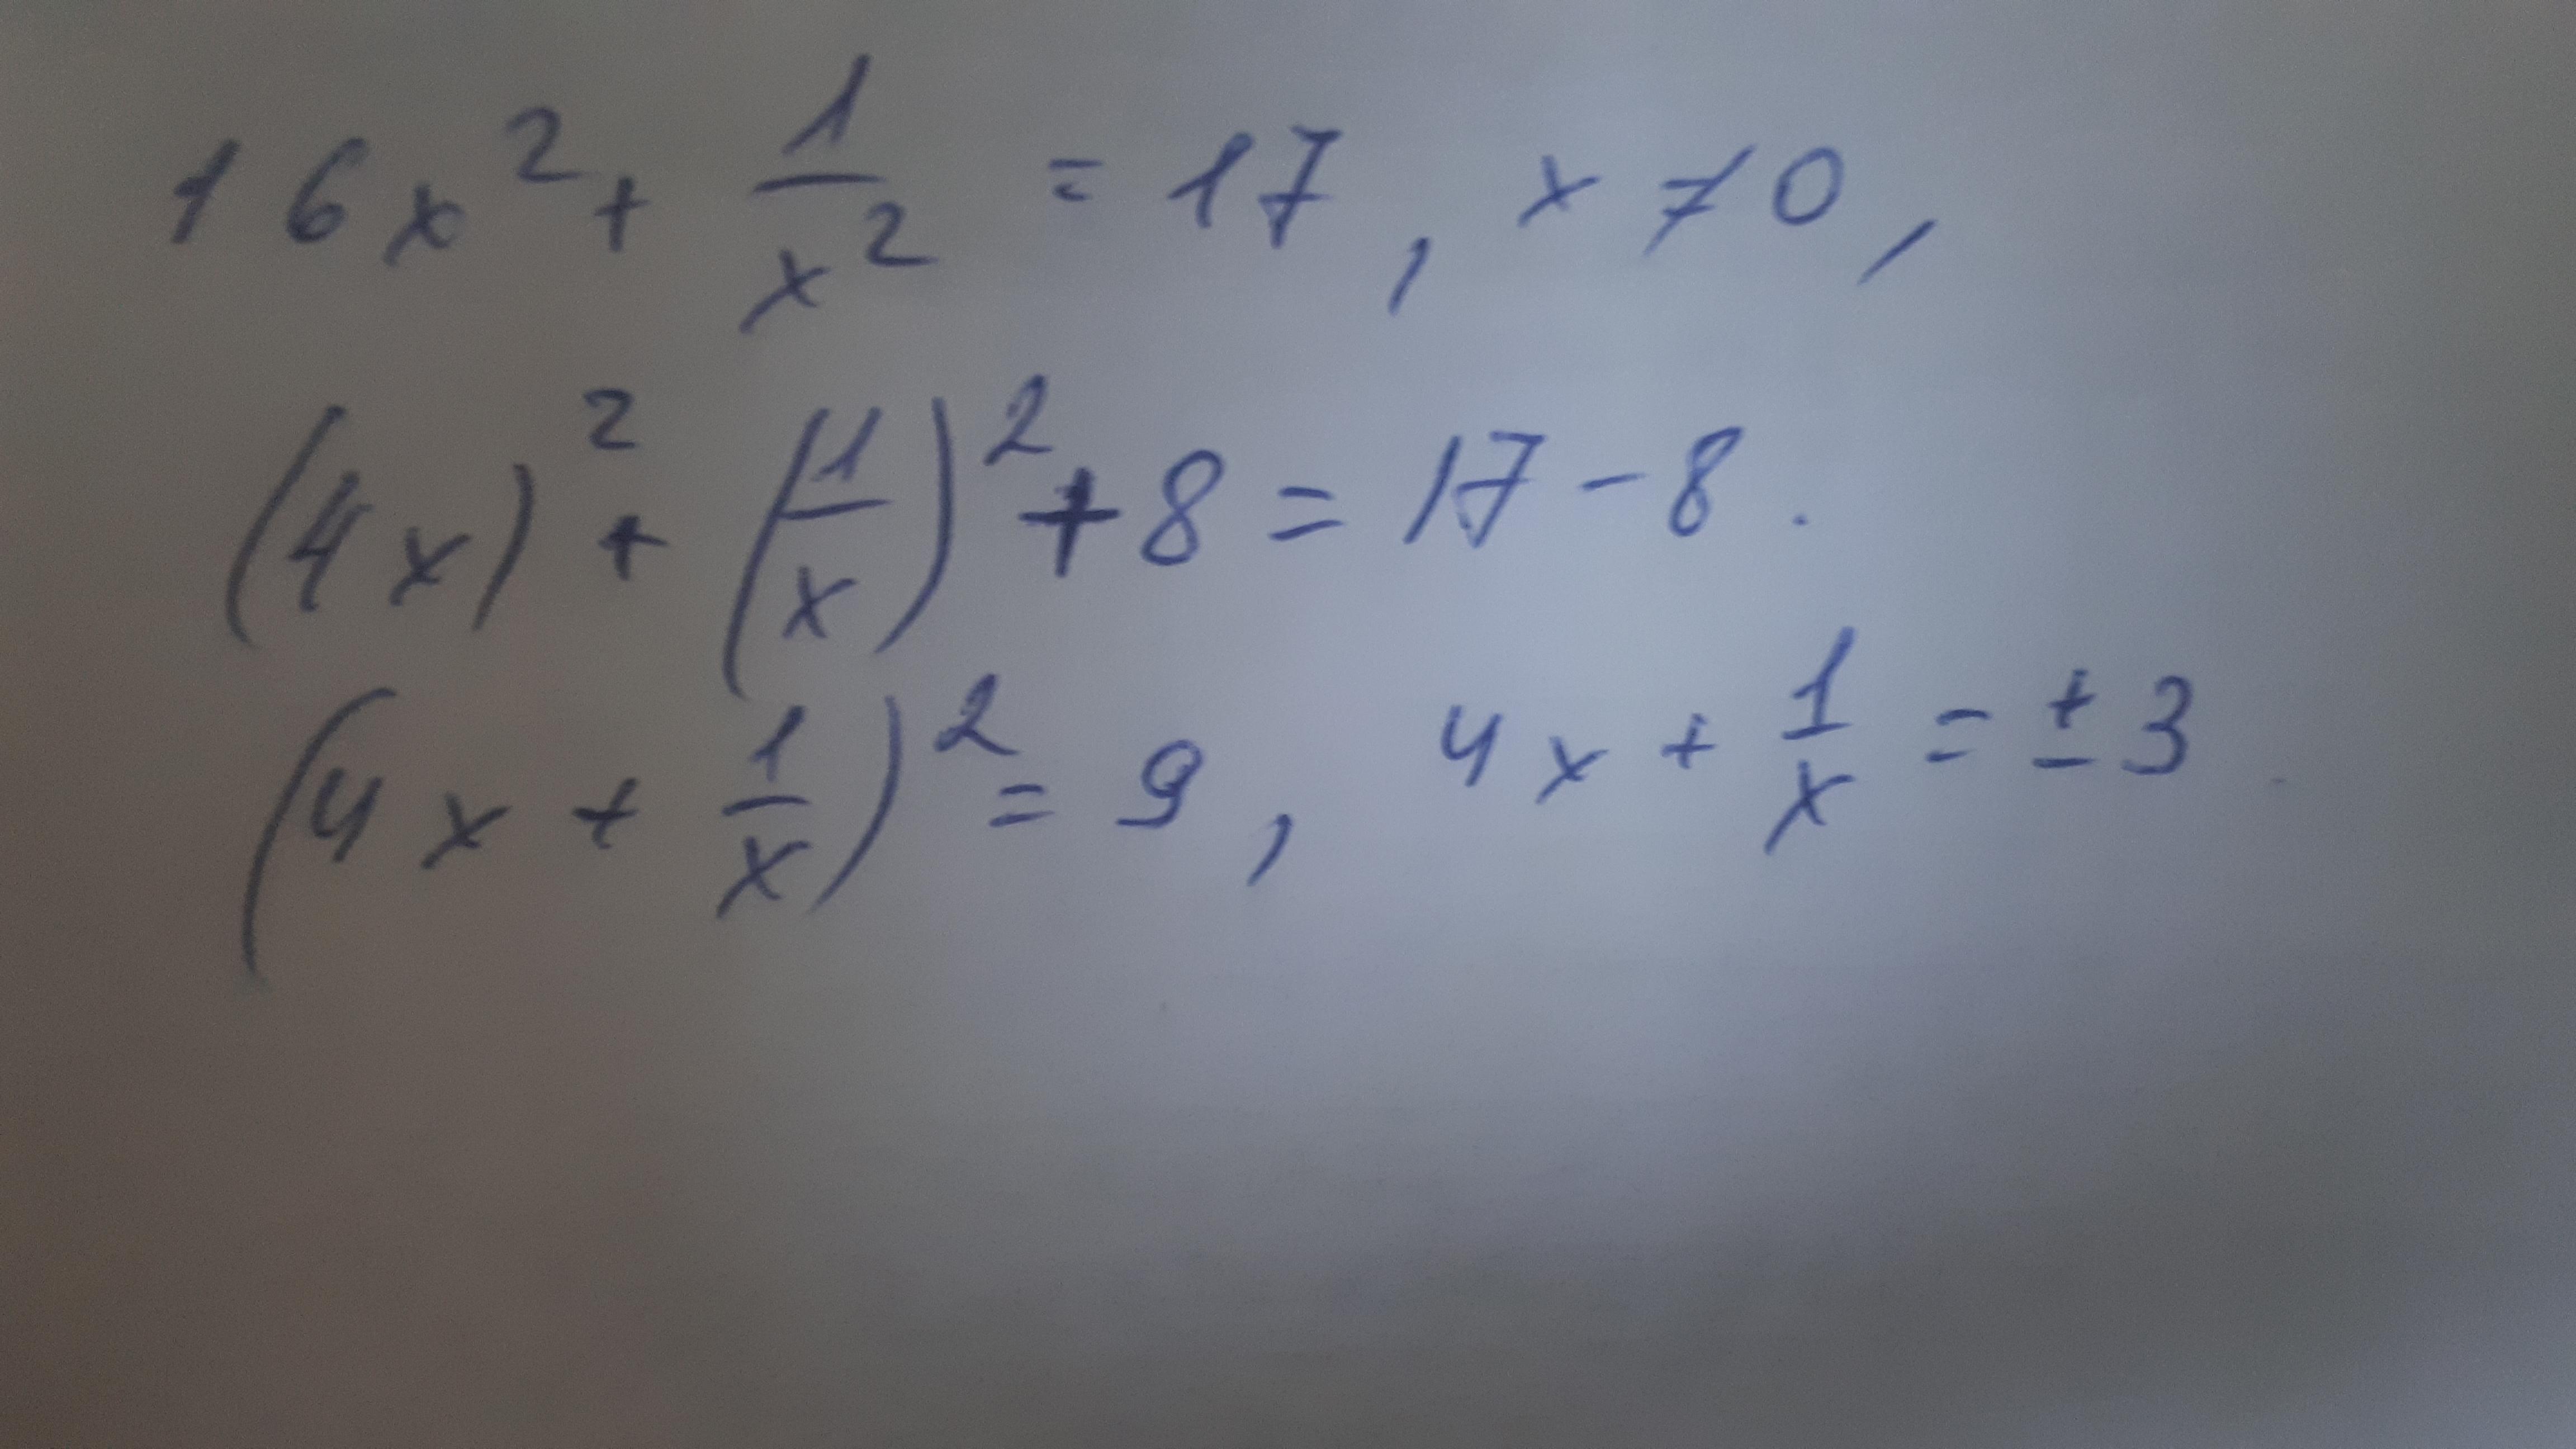 16x² + 1/x² = 17, x ≠ 0,
(4x)² + (1/x)² + 8 = 17 - 8.
(4x + 1/x)² = 9, 4x + 1/x = ± 3